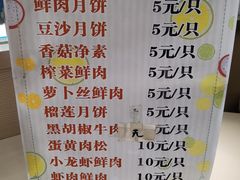 鲜肉月饼 5元/只
豆沙月饼 5元/只
香菇净素 5元/只
榨菜鲜肉 5元/只
萝卜丝鲜肉 5元/只
榴莲月饼 5元/只
黑胡椒牛肉 元
蛋黄肉松 10元/只
小龙虾鲜肉 10元/只
虾肉鲜肉 10元/只